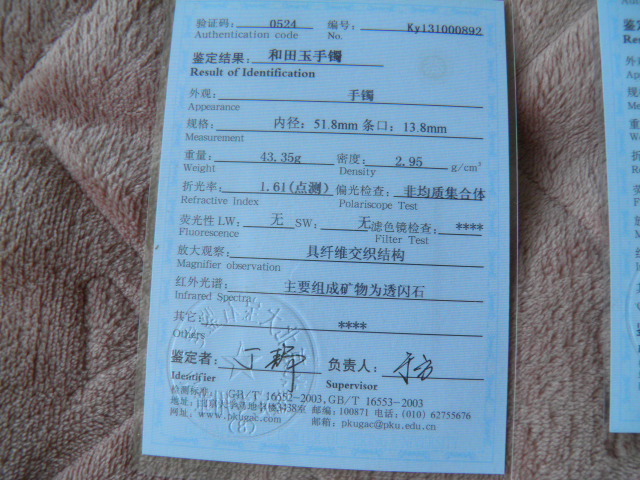 验证码: 0524 编号: Ky131000892
Authentication code No.
鉴定结果: 和田玉手镯
Result of Identification
外观: 手镯
Appearance
规格: 内径: 51.8mm 条口: 13.8mm
Measurement
重量: 43.35g 密度: 2.95 g/cm³
Weight Density
折光率: 1.61(点测) 偏光检查: 非均质集合体
Refractive Index Polariscope Test
荧光性 LW: 无 SW: 无 滤色镜检查: ****
Fluorescence Filter Test
放大观察: 具纤维交织结构
Magnifier observation
红外光谱: 主要组成矿物为透闪石
Infrared Spectra
其它: ****
Others
鉴定者: 负责人:
Identifier Supervisor
检测标准: GB/T 16552-2003, GB/T 16553-2003
地址: 北京大学 438室 邮编: 100871 电话: (010) 62755676
网址: www.pkugac.com 邮箱: pkugac@pku.edu.cn